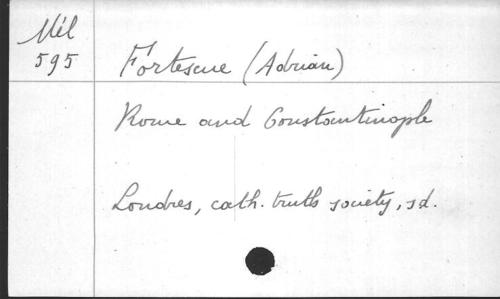 Mél
595
Fortescue (Adrian)
Rome and Constantinople
Londres, cath. truth society, sd.